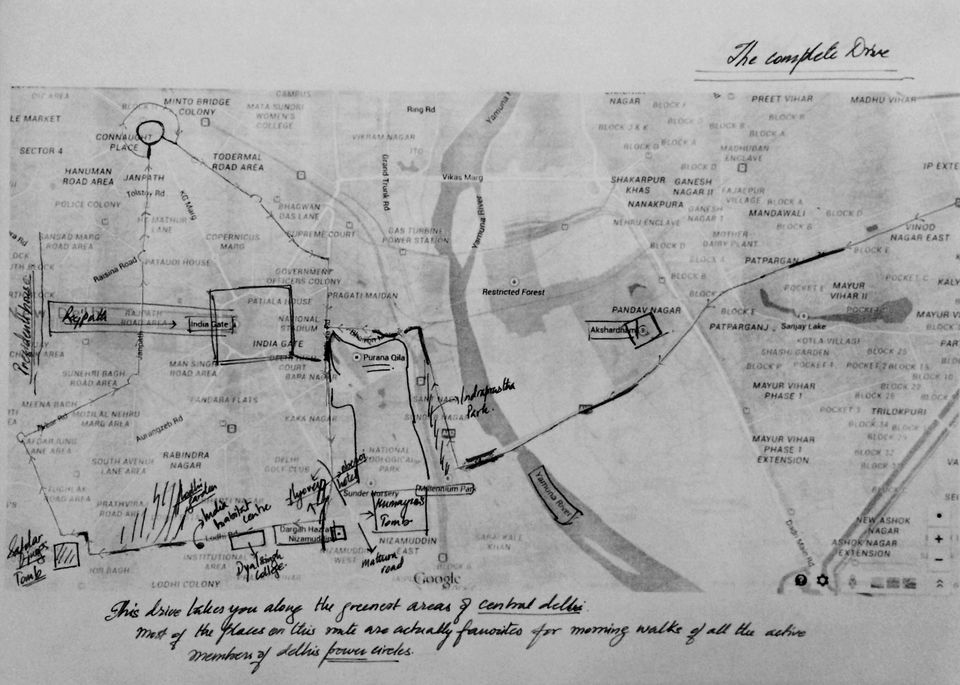 The complete Drive
CAMPUS
MINTO BRIDGE
COLONY
MATA SUNDRI
WOMEN'S
COLLEGE
Ring Rd
Yamuna
NAGAR
BLOCK J
PREET VIHAR
MADHU VIHAR
LE MARKET
CONNAUGHT
PLACE
VIKRAM NAGAR
ITO
BLOCK J & K
BLOCK B
BLOCK A
MADHUBAN
ENCLAVE
SECTOR 4
TODERMAL
ROAD AREA
HANUMAN
ROAD AREA
JANPATH
Tolstoy Rd
KG Marg
Grand Trunk Rd
Vikas Marg
SHAKARPUR
KHAS
GANESH
NAGAR II
POLICE COLONY
BHAGWAN
DAS LANE
Yamuna River
NANAKPURA
GANESH
NAGAR
VILLAGE
BLOCK A
MANDAWALI
BLOCK D
COPERNICUS
MARG
SUPREME COURT
GAS TURBINE
POWER STATION
NEHRU ENCLAVE
MOTHER
DAIRY PLANT
VINOD
NAGAR EAST
ROAD AREA
Raisina Road
PATAUDI HOUSE
GOVERNMENT
OFFICERS COLONY
PATPARGAN
Restricted Forest
MAYUR
VIHAR II
POCKET C
President house
Rajpath
RAJPATH
ROAD AREA
PATIALA HOUSE
PRAGATI MAIDAN
India Gate
NATIONAL
STADIUM
PANDAV NAGAR
Akshardham
PATPARGANJ
Sanjay Lake
Janpath
INDIA GATE
KOTLA VILLAGE
Purana Qila
SHASHI GARDEN
BLOCK 25
MAN SINGH
ROAD AREA
COURT
BAPA NAGAR
SUNEHRI BAGH
ROAD AREA
MAYUR VIHAR
PHASE 1
Indraprastha
Park.
PANDARA FLATS
KAKA NAGAR
TRILOKPURI
MEENA BAGH
MOTILAL NEHRU
MARG AREA
Aurangzeb Rd
MAYUR VIHAR
PHASE 1
EXTENSION
RABINDRA
NAGAR
DELHI
GOLF CLUB
NATIONAL
ZOOLOGICAL
PARK
SOUTH AVENUE
LANE AREA
Lodhi
Garden
oberoi
hotel
Flyover
Sunder Nursery
Millennium Park
Yamuna River
India
habitat
centre
Humayuns
Tomb
Lodhi Rd
Dargah Hazrat
Nizamuddin
NIZAMUDDIN
EAST
SARAI KALE
KHAN
NEW ASHOK
NAGAR
ASHOK NAGAR
EXTENSION
Safdar
jungs
Tomb
JOR BAGH
INSTITUTIONAL
AREA
Dyal singh
college.
matura
road
LODHI COLONY
BLOCK G
Google
This drive takes you along the greenest areas of central delhi.
most of the places on this route are actually favorites for morning walks of all the active
members of delhis power circles.